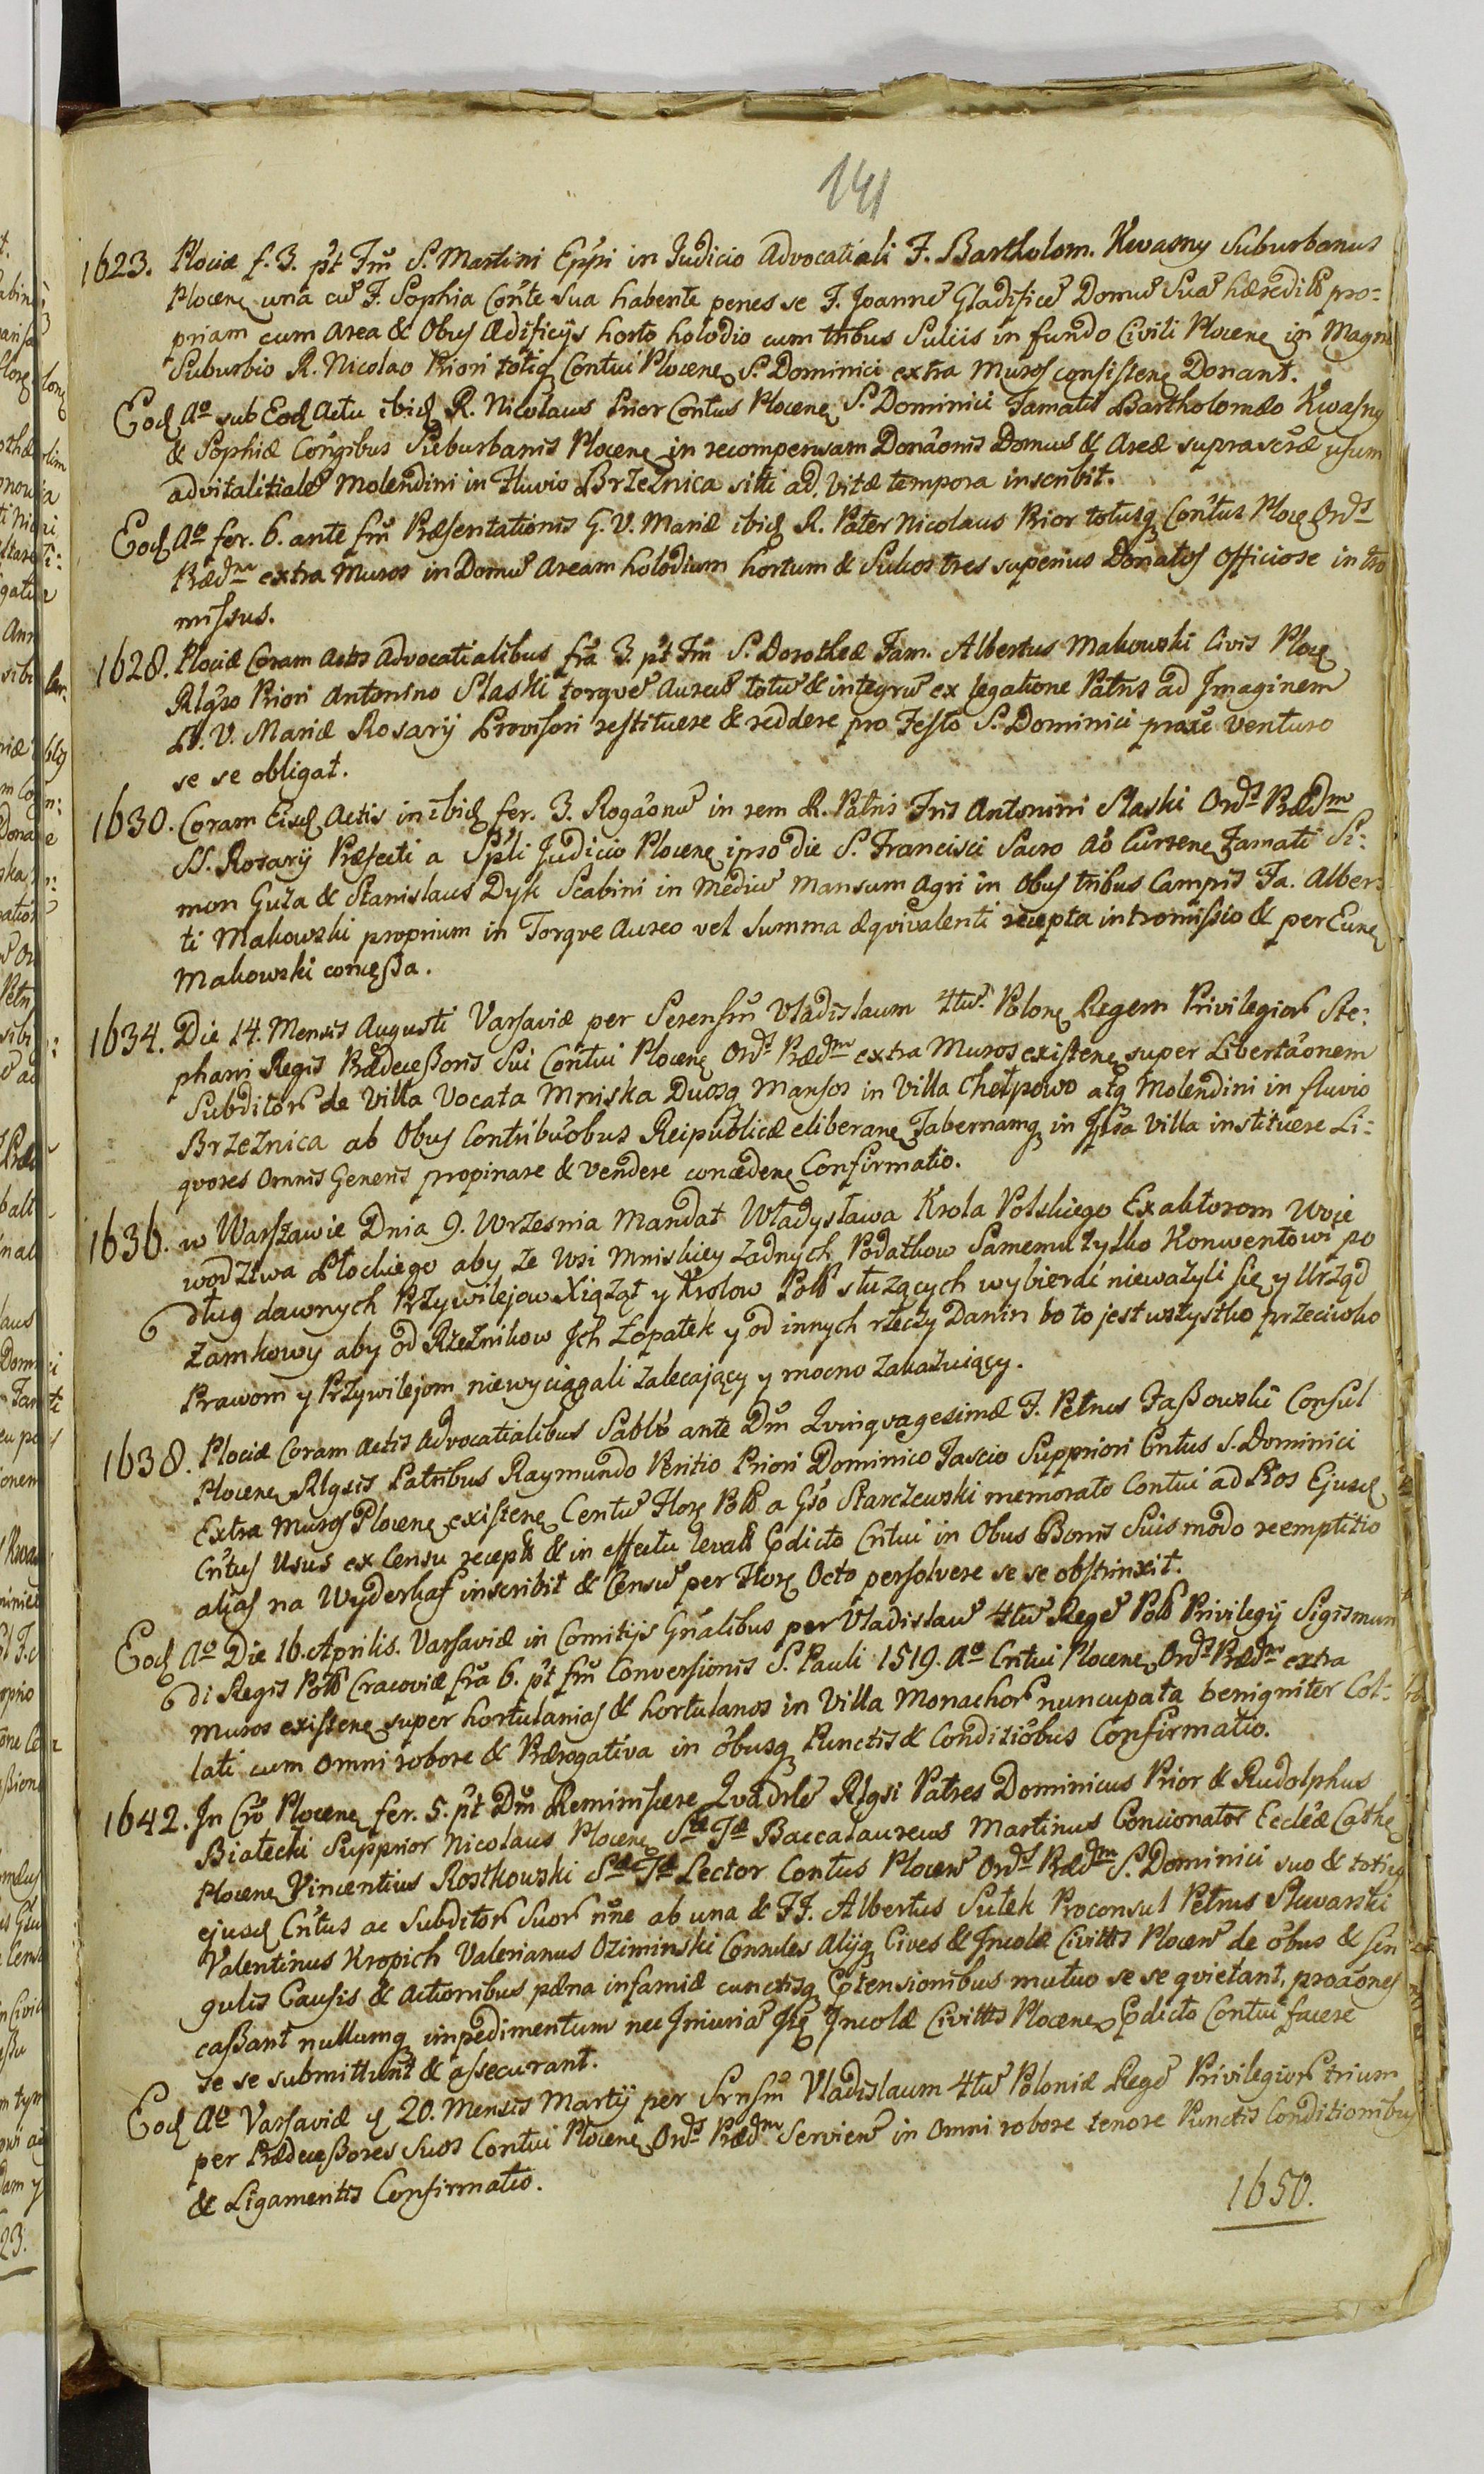 141
1623. Plociæ f. 3. pt Fm S. Martini Eppi in Judicio Advocatiali F. Bartholom. Kwasny Suburbanus
Plocen una cu F. Sophia Conte sua habente penes se F. Joanne Gladifice Domu Sua hæredit pro-
priam cum area & Obus Ædificijs horto holodio cum tribus Sulcis in fundo Civili Plocen in Magno
Suburbio R. Nicolao Priori totiq Contui Plocen S. Dominici extra Muros consisten Donant.
Eod Ao sub Eod Actu ibid R. Nicolaus Prior Contus Plocen S. Dominici Famatis Bartholomæo Kwasny
& Sophiæ Conjbus Suburbanis Plocen in recompensam Donaonis Domus & Areæ suprascræ usum
advitalitiale Molendini in Fluvio Brzeznica siti ad vitæ tempora inscribit.
Eod Ao fer. 6. ante fm Præsentationis G. V. Mariæ ibid R. Pater Nicolaus Prior totusq Contus Ploc Ords
Prædm extra Muros in Domu Aream holodium hortum & Sulcos tres superius Donatos officiose intro
missus.
1628. Plociæ Coram Actis Advocatialibus fra 3. pt Fm S. Dorotheæ Fam. Albertus Makowski Civis Ploc
Rlgso Priori Antonino Slaski torque Aureu totu & integru ex legatione Patris ad Imaginem
B. V. Mariæ Rosarij Provisori restituere & reddere pro Festo S. Dominici proxe venturo
se se obligat.
1630. Coram Eisd Actis in ibid fer. 3. Rogaonu in rem R. Patris Fris Antonini Slaski Ords Prædm
SS. Rosarij Præfecti a Spli Judicio Plocen ipso die S. Francisci Sacro Ao Curren Famati Si-
mon Guza & Stanislaus Dyk Scabini in Mediu Mansum Agri in Obus tribus Campis Fa. Alber-
ti Makowski proprium in Torque Aureo vel Summa æquivalenti recepta intromissio & per Eund
Makowski concessa.
1634. Die 14. Mensis Augusti Varsaviæ per Serensm Vladislaum 4tu Polon Regem Privilegior Ste-
phani Regis Prædecessoris Sui Contui Plocen Ords Prædm extra Muros existen super Libertaonem
Subditor de Villa Vocata Mniska Duosq Mansos in Villa Chelpowo atq Molendini in fluvio
Brzeznica ab Obus Contribuobus Reipublicæ eliberan Tabernamq in Ipsa Villa instituere Li-
quores Omnis Generis propinare & vendere conceden Confirmatio.
1636. w Warszawie Dnia 9. Wrzesnia Mandat Władysława Krola Polskiego Exaktorom Woje
wodztwa Płockiego aby ze Wsi Mniskiey zadnych Podatkow Samemu tylko Konwentowi po
dług dawnych Przywilejow Xiążąt y Krolow Pols służących wybierać nieważyli się y Urząd
Zamkowy aby od Rzeznikow Ich Łopatek y od innych rzeczy Danin bo to jest wszystko przeciwko
Prawom y Przywilejom niewyciągali zalecający y mocno zakazuiący.
1638. Plociæ Coram Actis Advocatialibus Sabbo ante Dm Quinquagesimæ F. Petrus Fassowski Consul
Plocen Rlgsis Patribus Raymundo Veritio Priori Dominico Fascio Suppriori Cntus S. Dominici
Extra Muros Plocen existen Centu Flor Pols a Gso Starczewski memorato Contui ad Ros Ejusd
Cntus Usus ex Censu recept & in effectu levat Pdicto Cntui in Obus Bonis Suis modo reemptitio
alias na Wyderkaf inscribit & Censu per Flor Octo persolvere se se obstrinxit.
Eod Ao Die 16. Aprilis. Varsaviæ in Comitijs Gnalibus per Vladislau 4tu Rege Pols Privilegij Sigismun
di Regis Pols Cracoviæ fra 6. pt fm Conversionis S. Pauli 1519. Ao Cntui Plocen Ords Prædm extra
muros existen super hortulanias & hortulanos in Villa Monachor nuncupata benigniter Col-
lati cum omni robore & Prærogativa in obusq Punctis & Conditiobus Confirmatio.
1642. In Cro Plocen fer. 5. pt Dm Reminiscere Quadrle Rlgsi Patres Dominicus Prior & Rudolphus
Białecki Supprior Nicolaus Plocen Sæ Tæ Baccalaureus Martinus Concionator Eccleæ Cathe
Plocen Vincentius Rostkowski Sæ Tæ Lector Contus Plocen Ords Prædm S. Dominici suo & totiq
ejusd Cntus ac Subditor Suor nne ab una & FF. Albertus Sutek Proconsul Petrus Skwarski
Valentinus Kropich Valerianus Oziminski Consules Alijq Cives & Incolæ Civittis Plocen de obus & sin
gulis Causis & Actionibus pæna infamiæ cunctisq Ptensionibus mutuo se se quietant, proaones
cassant nullumq impedimentum nec Iniuria Incolæ Civittis Plocen Pdicto Contui facere
se se submittunt & assecurant.
Eod Ao Varsaviæ 20. Mensis Martij per Srnsm Vladislaum 4tu Poloniæ Rege Privilegior trium
per Prædecessores Suos Contui Plocen Ords Prædm Servien in omni robore tenore Punctis Conditionibus
& Ligamentis Confirmatio.
1650.